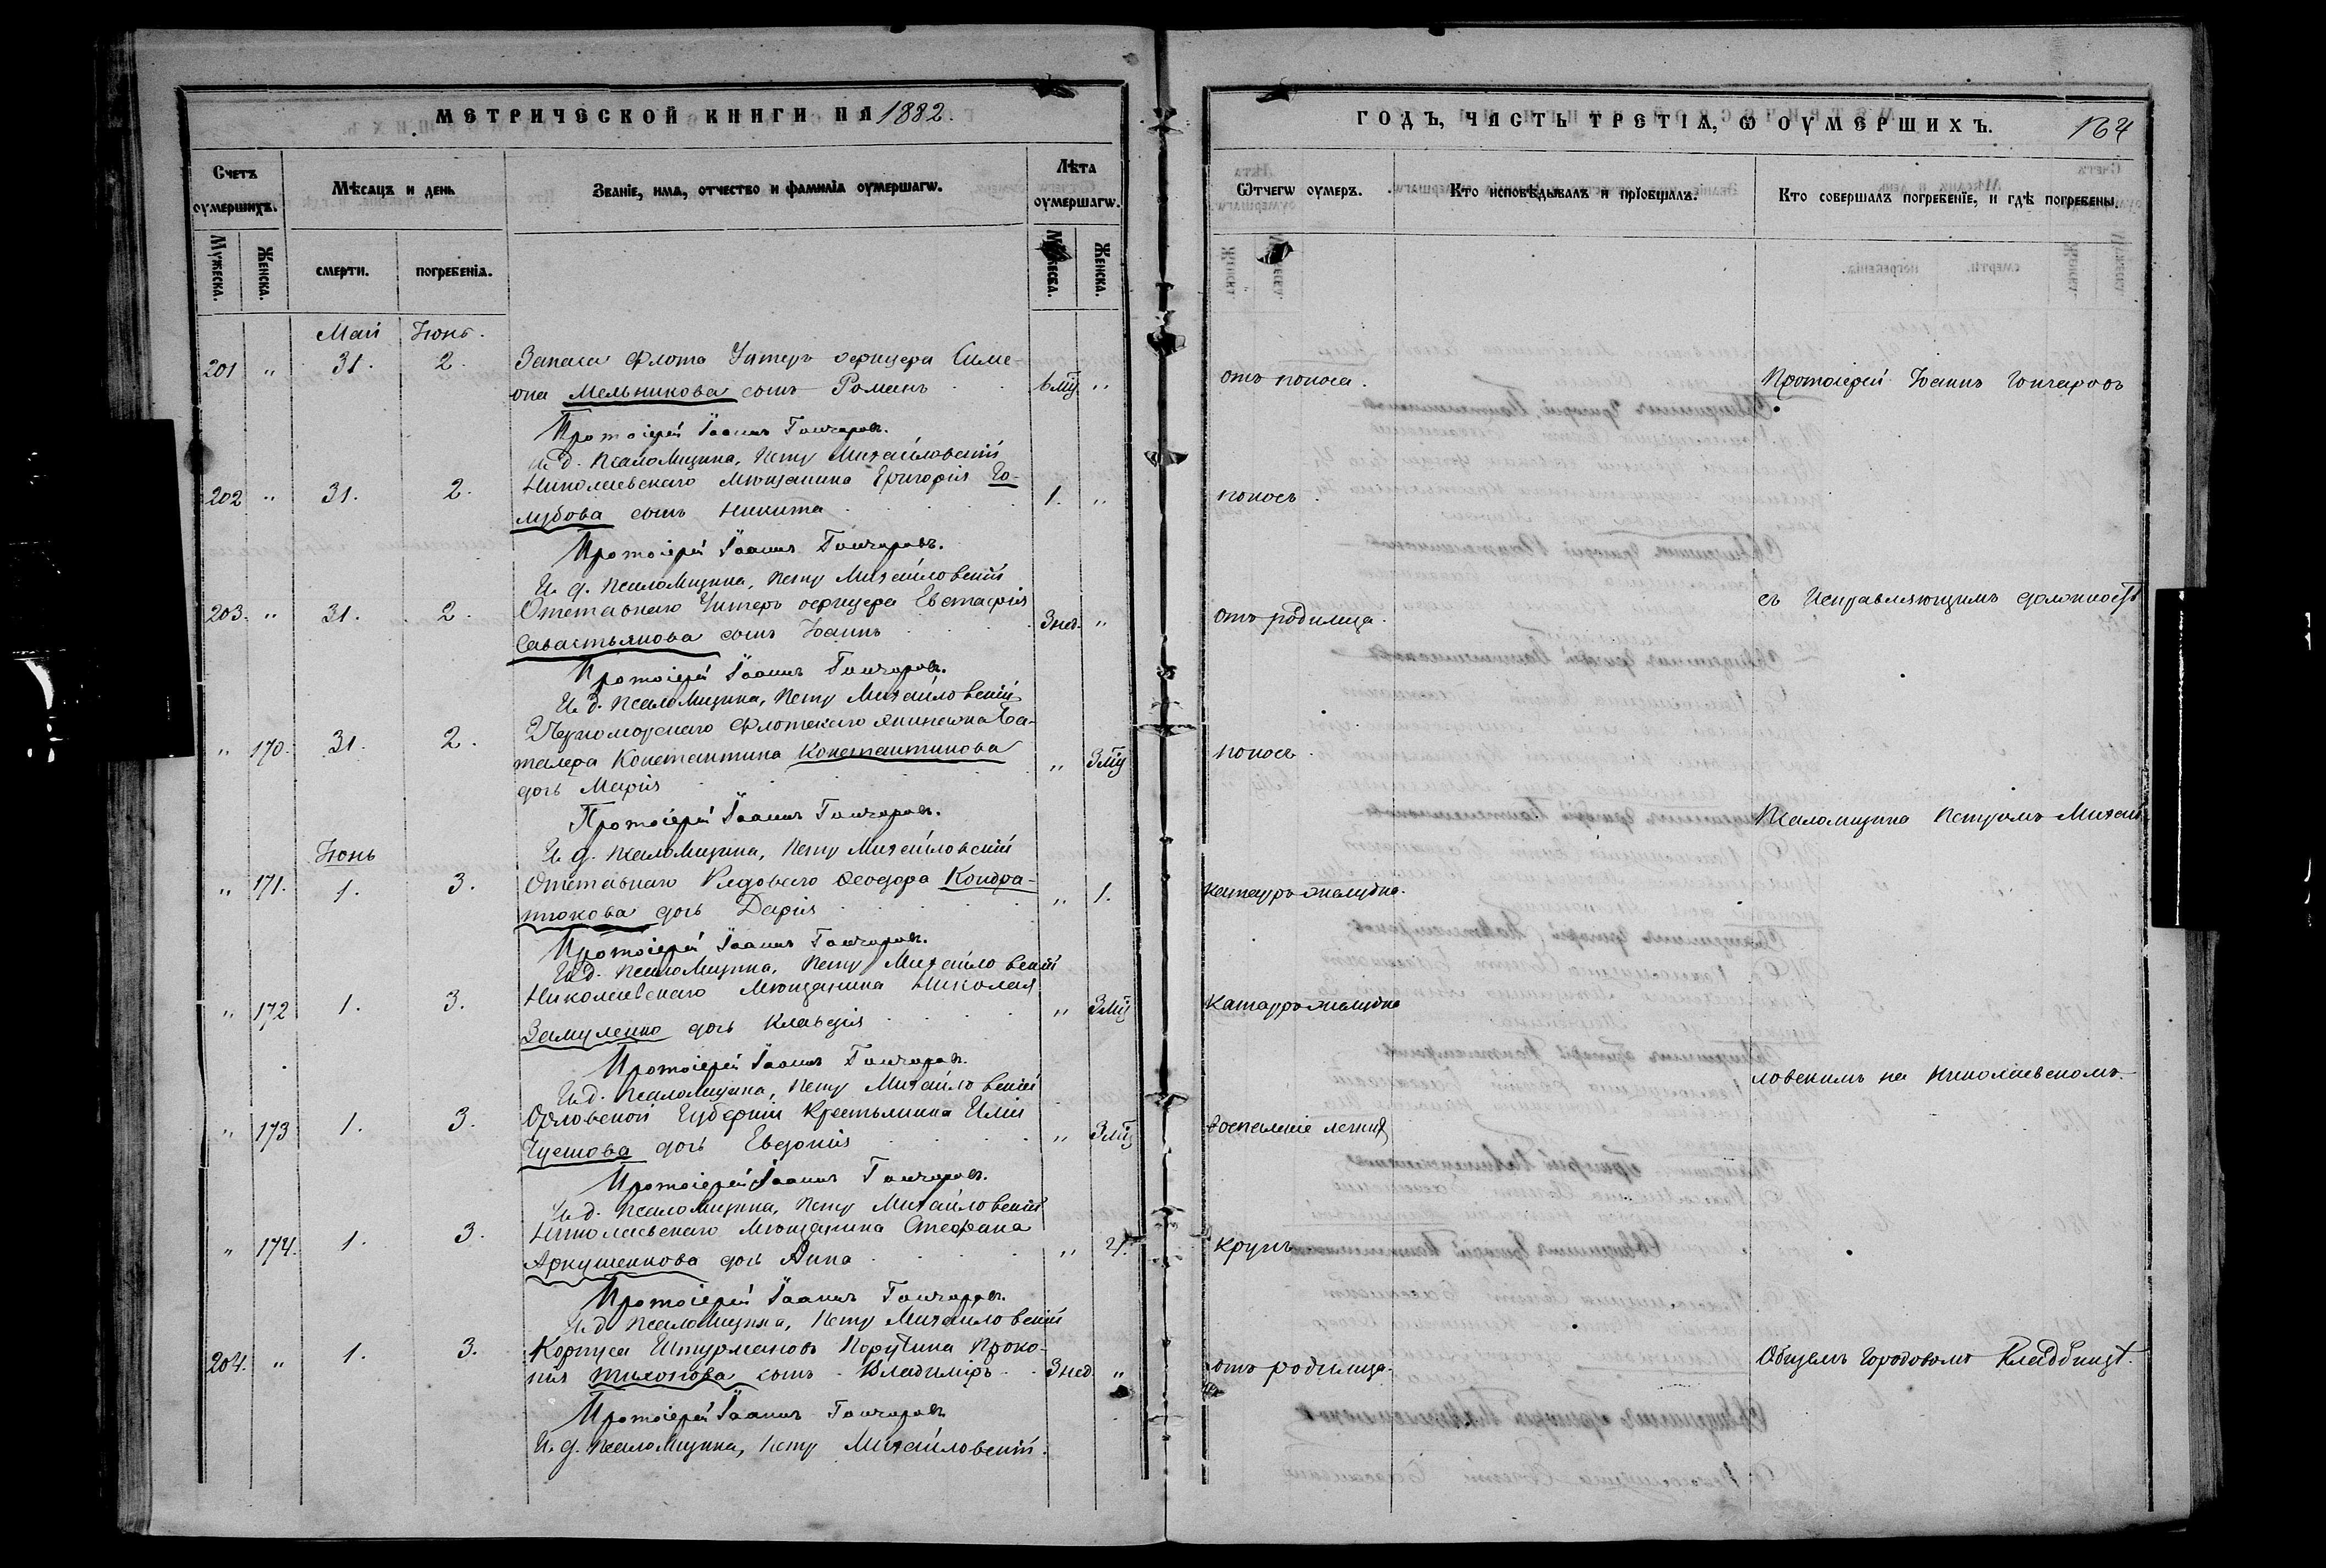 МЕТРИЧЕСКОЙ КНИГИ НА 1882.
Счетъ оумершихъ.
Мѣсяцъ и день
Званіе, имя, отчество и фамилія оумершагѡ.
Лѣта оумершагѡ.
Мужеска.
Женска.
смерти.
погребенія.
Мужеска.
Женска.
Май Іюнь.
201 " 31. 2. Запаса Флота Унтеръ офицера Симе-
она Мельникова сынъ Романъ 6 мѣц "
Протоіерей Іоаннъ Гончаровъ.
И. д. Псаломщика, Петръ Михайловскій
202 " 31. 2. Николаевскаго Мѣщанина Григорія Го-
лубова сынъ Никита 1. "
Протоіерей Іоаннъ Гончаровъ.
И. д. Псаломщика, Петръ Михайловскій
203. " 31. 2. Отставнаго Унтеръ офицера Евстафія
Савастьянова сынъ Іоаннъ 3 нед. "
Протоіерей Іоаннъ Гончаровъ.
И. д. Псаломщика, Петръ Михайловскій
" 170. 31. 2. Черноморскаго Флотскаго Экипажа Ба-
талера Константина Константинова " 3 мѣц
дочь Марія
Протоіерей Іоаннъ Гончаровъ.
Іюнь И. д. Псаломщика, Петръ Михайловскій
" 171. 1. 3. Отставнаго Рядоваго Ѳеодора Кондра-
тюкова дочь Дарія " 1.
Протоіерей Іоаннъ Гончаровъ.
И. д. Псаломщика, Петръ Михайловскій
" 172 1. 3. Николаевскаго Мѣщанина Николая " 3 мѣц
Замуленко дочь Клавдія
Протоіерей Іоаннъ Гончаровъ.
И. д. Псаломщика, Петръ Михайловскій
" 173 1. 3. Орловской Губерніи Крестьянина Иліи
дочь Евдокія " 3 мѣц
Протоіерей Іоаннъ Гончаровъ.
И. д. Псаломщика, Петръ Михайловскій
" 174. 1. 3. Николаевскаго Мѣщанина Стефана
Аркушенкова дочь Анна "
Протоіерей Іоаннъ Гончаровъ.
И. д. Псаломщика, Петръ Михайловскій
204. " 1. 3. Корпуса Штурмановъ Порутчика Проко-
пія Тихонова сынъ Владиміръ 3 нед "
Протоіерей Іоаннъ Гончаровъ
И. д. Псаломщика, Петръ Михайловскій.
ГОДЪ, ЧАСТЬ ТРЕТІЯ, Ѡ ОУМЕРШИХЪ. 164
Ѿтчегѡ оумеръ.
Кто исповѣдывалъ и пріобщалъ.
Кто совершалъ погребеніе, и гдѣ погребены.
отъ поноса. Протоіерей Іоаннъ Гончаровъ
поносъ.
съ Исправляющимъ должность
отъ родимца.
поносъ.
Псаломщика Петромъ Михай
катарръ желудка.
Катарръ желудка
ловскимъ на Николаевскомъ
воспаленіе легкихъ
крупъ
Общемъ Городовомъ Кладбищѣ.
отъ родимца.